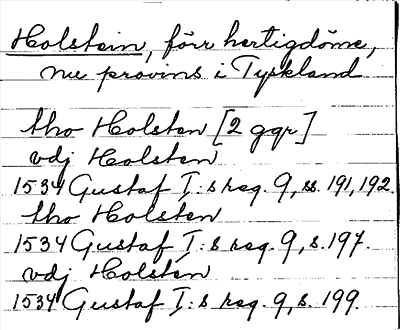 Holstein, förr hertigdöme,
nu provins i Tyskland
tho Holsten [2 ggr]
vdj Holsten
1534 Gustaf I:s reg. 9, ss. 191, 192.
tho Holsten
1534 Gustaf I:s reg. 9, s. 197.
vdj Holsten
1534 Gustaf I:s reg. 9, s. 199.